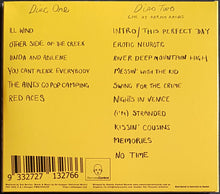 Disc One
ILL WIND
OTHER SIDE OF THE CREEK
LINDA AND ABILENE
YOU CAN'T PLEASE EVERYBODY
THE APINTS GO POP CAMPING
RED ACES
Disc Two
LIVE AT
INTRO/THIS PERFECT DAY
EROTIC NEUROTIC
RIVER DEEP MOUNTAIN HIGH
MESSIN' WITH THE KID
SWING FOR THE CRIME
NIGHTS IN VENICE
(I'M) STRANDED
KISSIN' COUSINS
MEMORIES
NO TIME
9 332727 132766